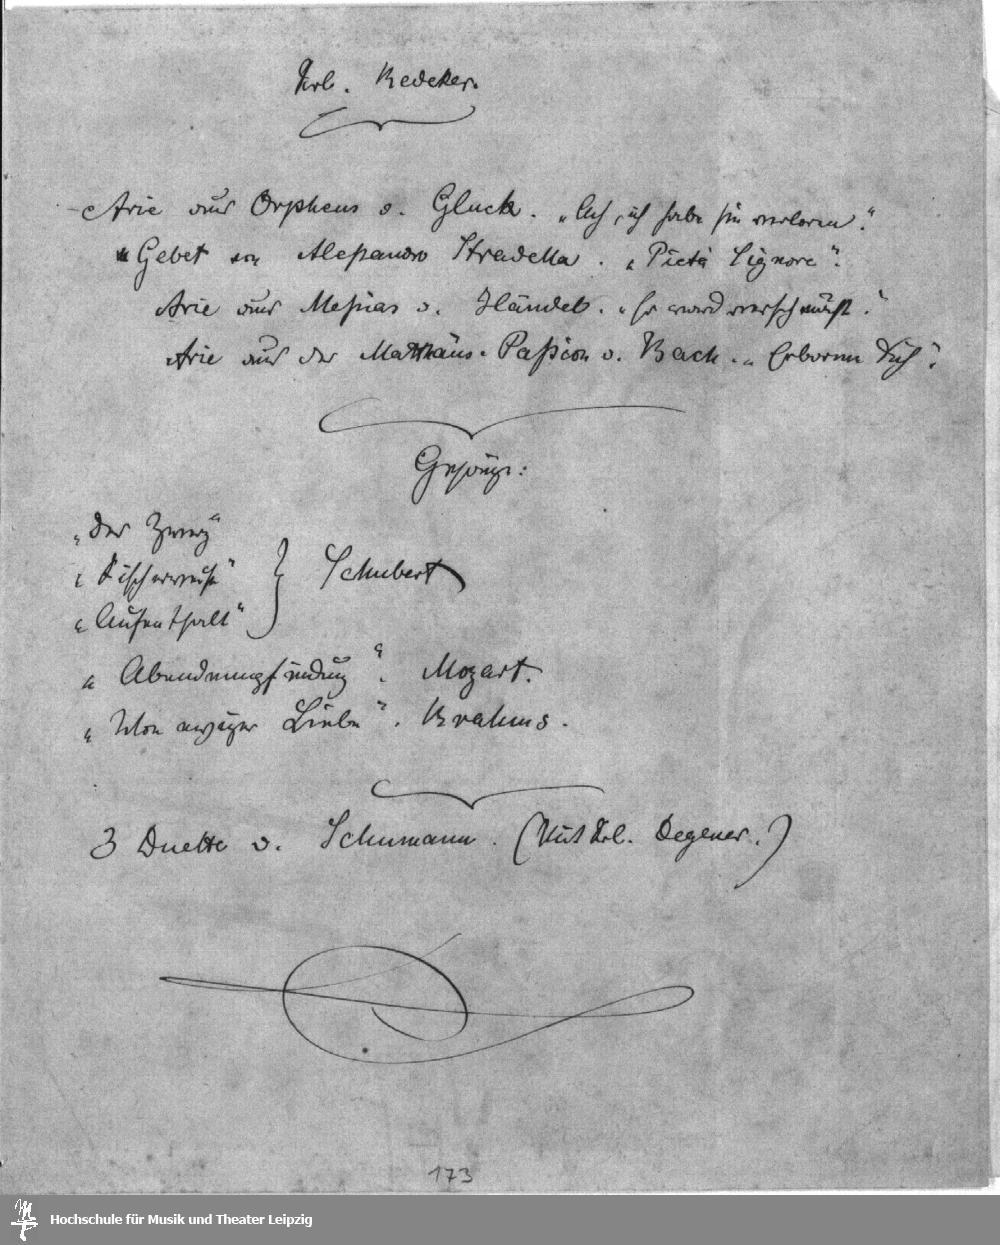 Frl. Redeker.
Arie aus Orpheus v. Gluck. „Ach, ich habe sie verloren".
Gebet von Alessandro Stradella. „Pietà Signore".
Arie aus Messias v. Händel. „Er ward verschmäht".
Arie aus der Matthäus-Passion v. Bach. „Erbarme Dich".
Gesänge:
„Der Zwerg"
„Fischerweise"
„Aufenthalt" } Schubert
„Abendempfindung". Mozart.
„Von ewiger Liebe". Brahms.
3 Duette v. Schumann. (Mit Frl. Degener.)
173
Hochschule für Musik und Theater Leipzig